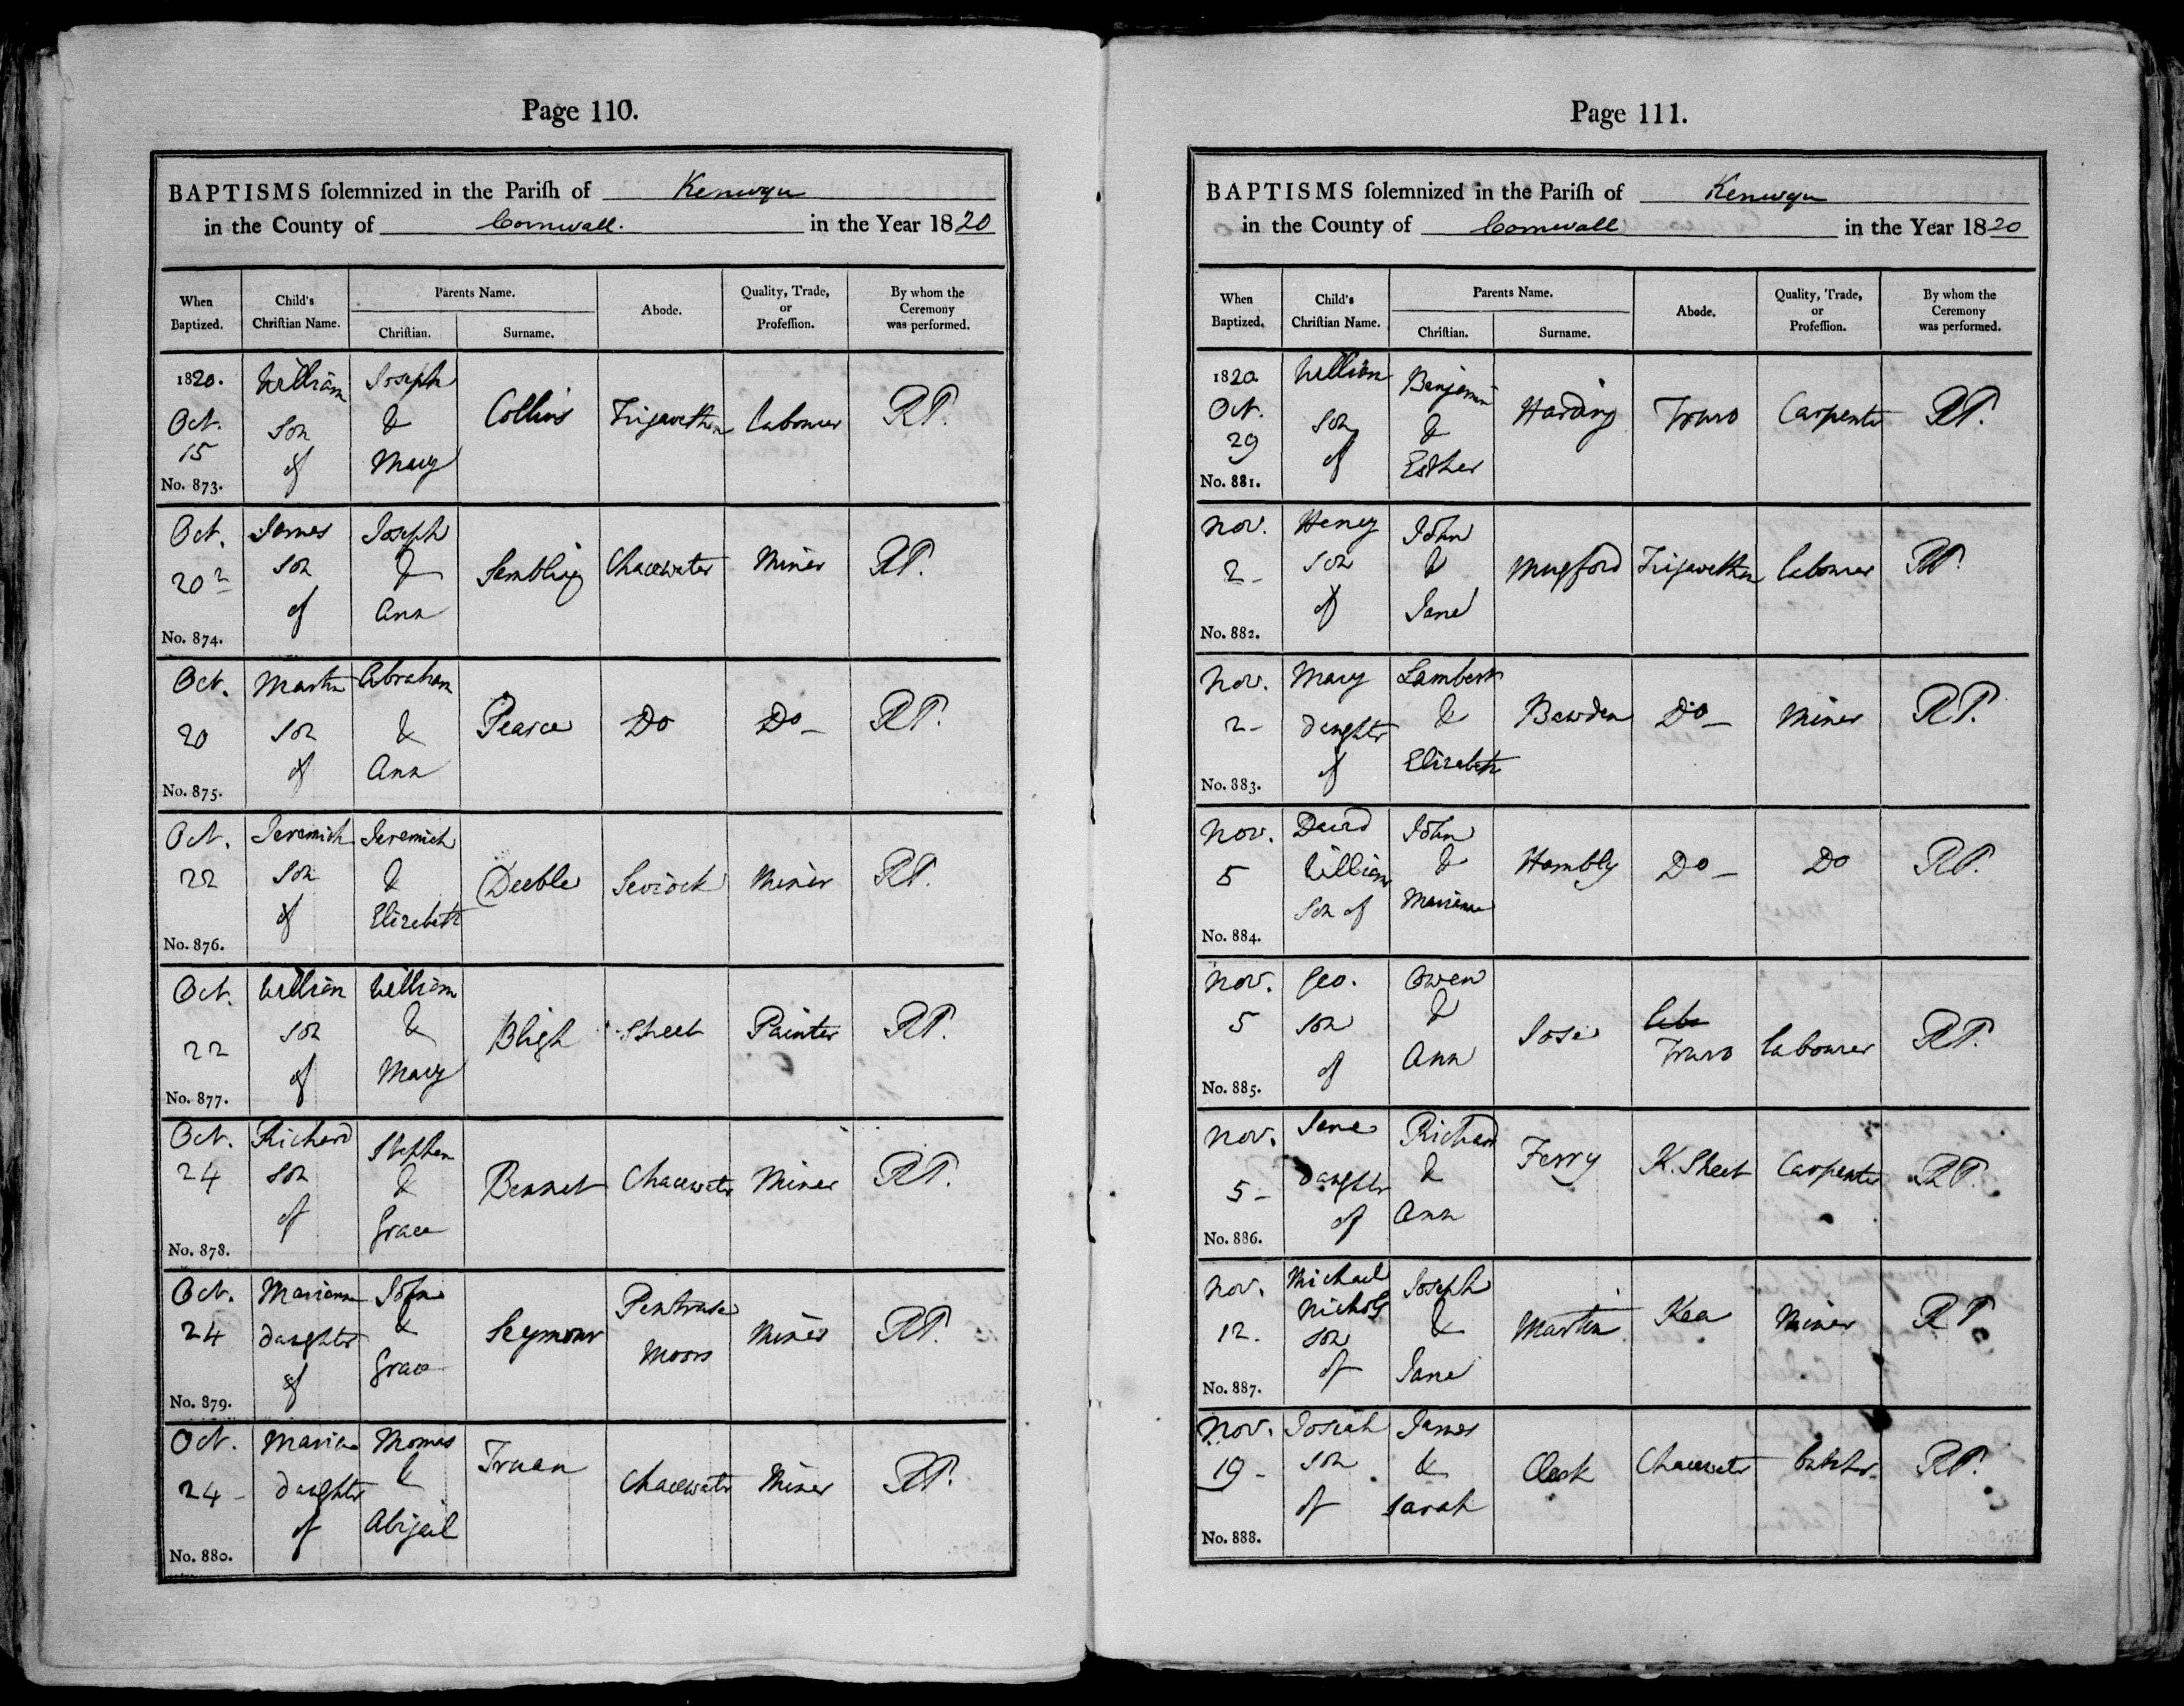 Page 110.
BAPTISMS solemnized in the Parish of Kenwyn
in the County of Cornwall. in the Year 1820
When Baptized.
Child's Christian Name.
Parents Name.
Christian.
Surname.
Abode.
Quality, Trade, or Profession.
By whom the Ceremony was performed.
1820. Oct. 15 No. 873.
William son of
Joseph & Mary
Collins
Labourer
RP.
Oct. 20 No. 874.
James son of
Joseph & Ann
Chacewater
Miner
RP.
Oct. 20 No. 875.
Martin son of
Abraham & Ann
Pearce
Do
Do
RP.
Oct. 22 No. 876.
Jeremiah son of
Jeremiah & Elizabeth
Deeble
Miner
RP.
Oct. 22 No. 877.
William son of
William & Mary
Bligh
Street
Painter
RP.
Oct. 24 No. 878.
Richard son of
Stephen & Grace
Bennet
Chacewater
Miner
RP.
Oct. 24 No. 879.
Marianne daughter of
John & Grace
Seymour
Moors
Miner
RP.
Oct. 24 No. 880.
Maria daughter of
Thomas & Abigail
Truan
Chacewater
Miner
RP.
Page 111.
BAPTISMS solemnized in the Parish of Kenwyn
in the County of Cornwall in the Year 1820
When Baptized.
Child's Christian Name.
Parents Name.
Christian.
Surname.
Abode.
Quality, Trade, or Profession.
By whom the Ceremony was performed.
1820. Oct. 29 No. 881.
William son of
Benjamin & Esther
Harding
Truro
Carpenter
RP.
Nov. 2 No. 882.
Henry son of
John & Jane
Mugford
Labourer
RP.
Nov. 2 No. 883.
Mary daughter of
Lambert & Elizabeth
Bawden
Do
Miner
RP.
Nov. 5 No. 884.
David William son of
John & Marianne
Hambly
Do
Do
RP.
Nov. 5 No. 885.
Geo. son of
Owen & Ann
Jose
Truro
Labourer
RP.
Nov. 5 No. 886.
Jane daughter of
Richard & Ann
Ferry
K. Street
Carpenter
RP.
Nov. 12. No. 887.
Michael Nichols son of
Joseph & Jane
Martin
Kea
Miner
RP
Nov. 19 No. 888.
Josiah son of
James & Sarah
Chacewater
Butcher
RP.